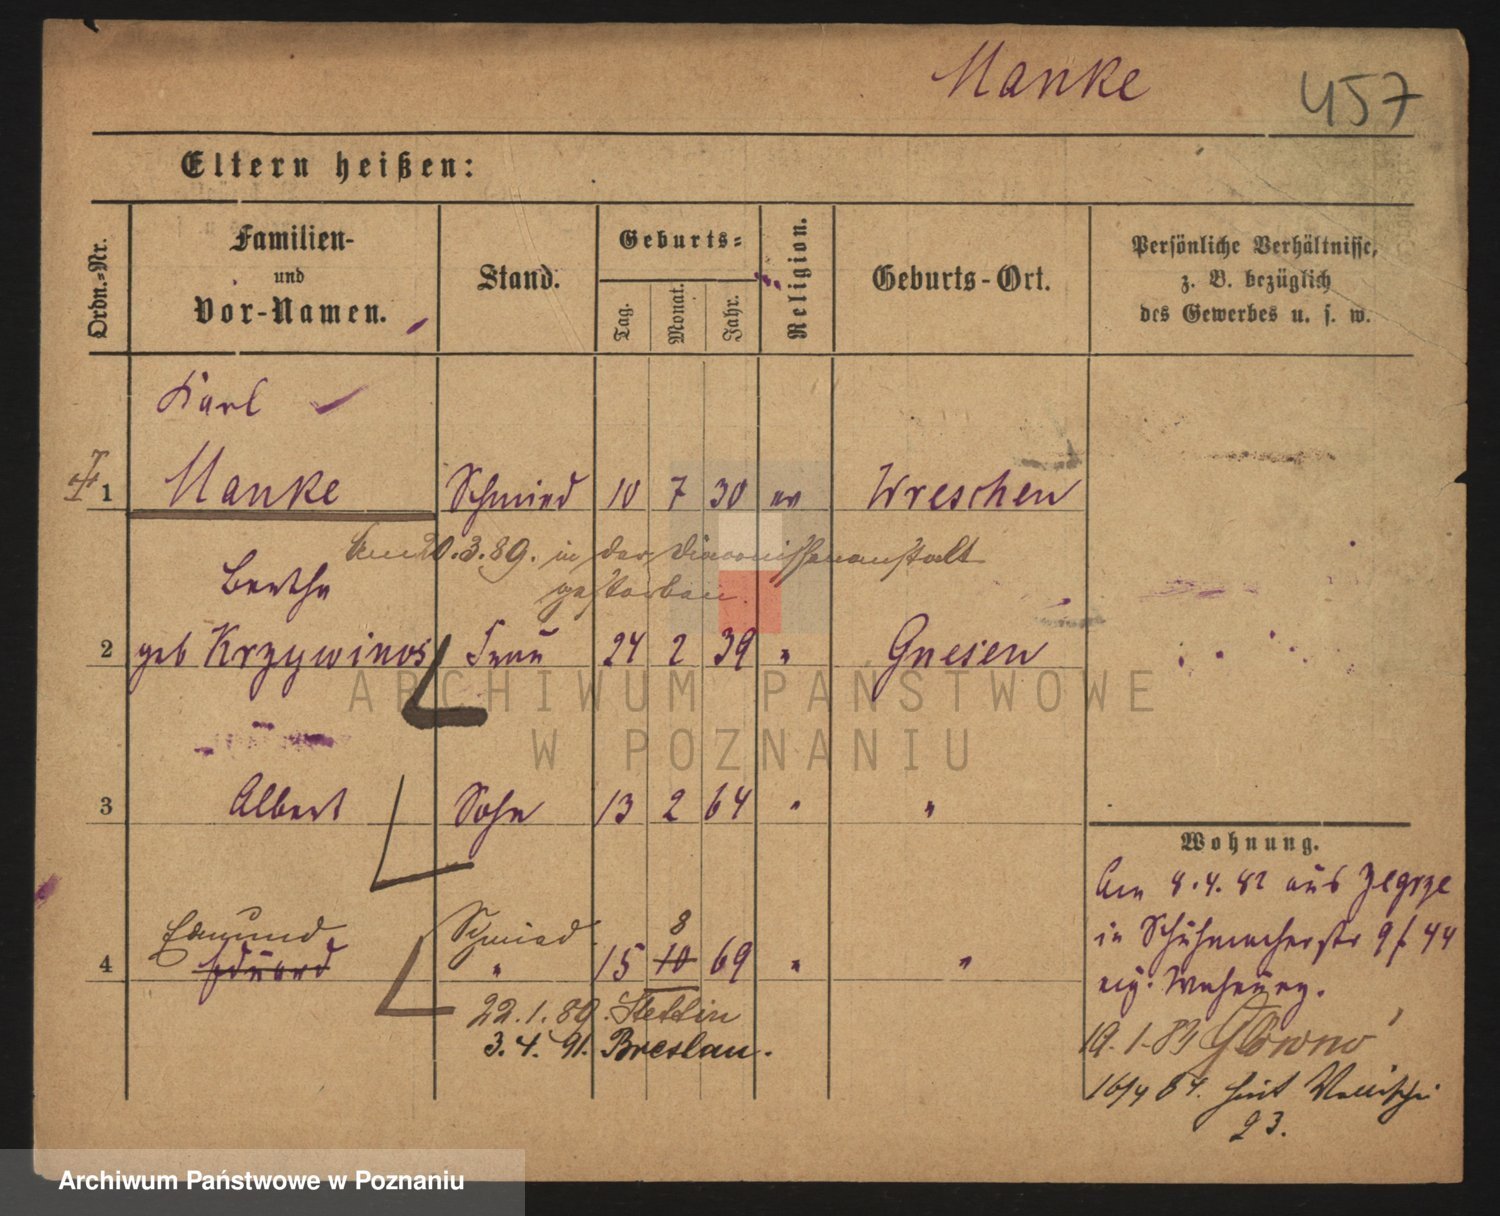 Manke
457
Eltern heißen:
Ordn.-Nr.
Familien-
und
Vor-Namen.
Stand.
Geburts-
Tag.
Monat.
Jahr.
Religion.
Geburts-Ort.
Persönliche Verhältnisse,
z. B. bezüglich
des Gewerbes u. s. w.
Karl
1 Manke Schmied 10 7 30 ev Wreschen
3.89. in der Diaconissenanstalt
gestorben.
Bertha
2 geb Krzywinos Frau 24 2 39 " Gnesen
3 Albert Sohn 13 2 64 " "
Edmund Schmied 8
4 Eduard " 15 10 69 " "
22.1.89. Stettin
3.4.91. Breslau.
Wohnung.
Am 8.4.82 aus Zegrze
in Schuhmacherstr 9 f 44
eig. Wohnung.
19.1.83 Glowno
16/4 84.
23.
ARCHIWUM PAŃSTWOWE
W POZNANIU
Archiwum Państwowe w Poznaniu